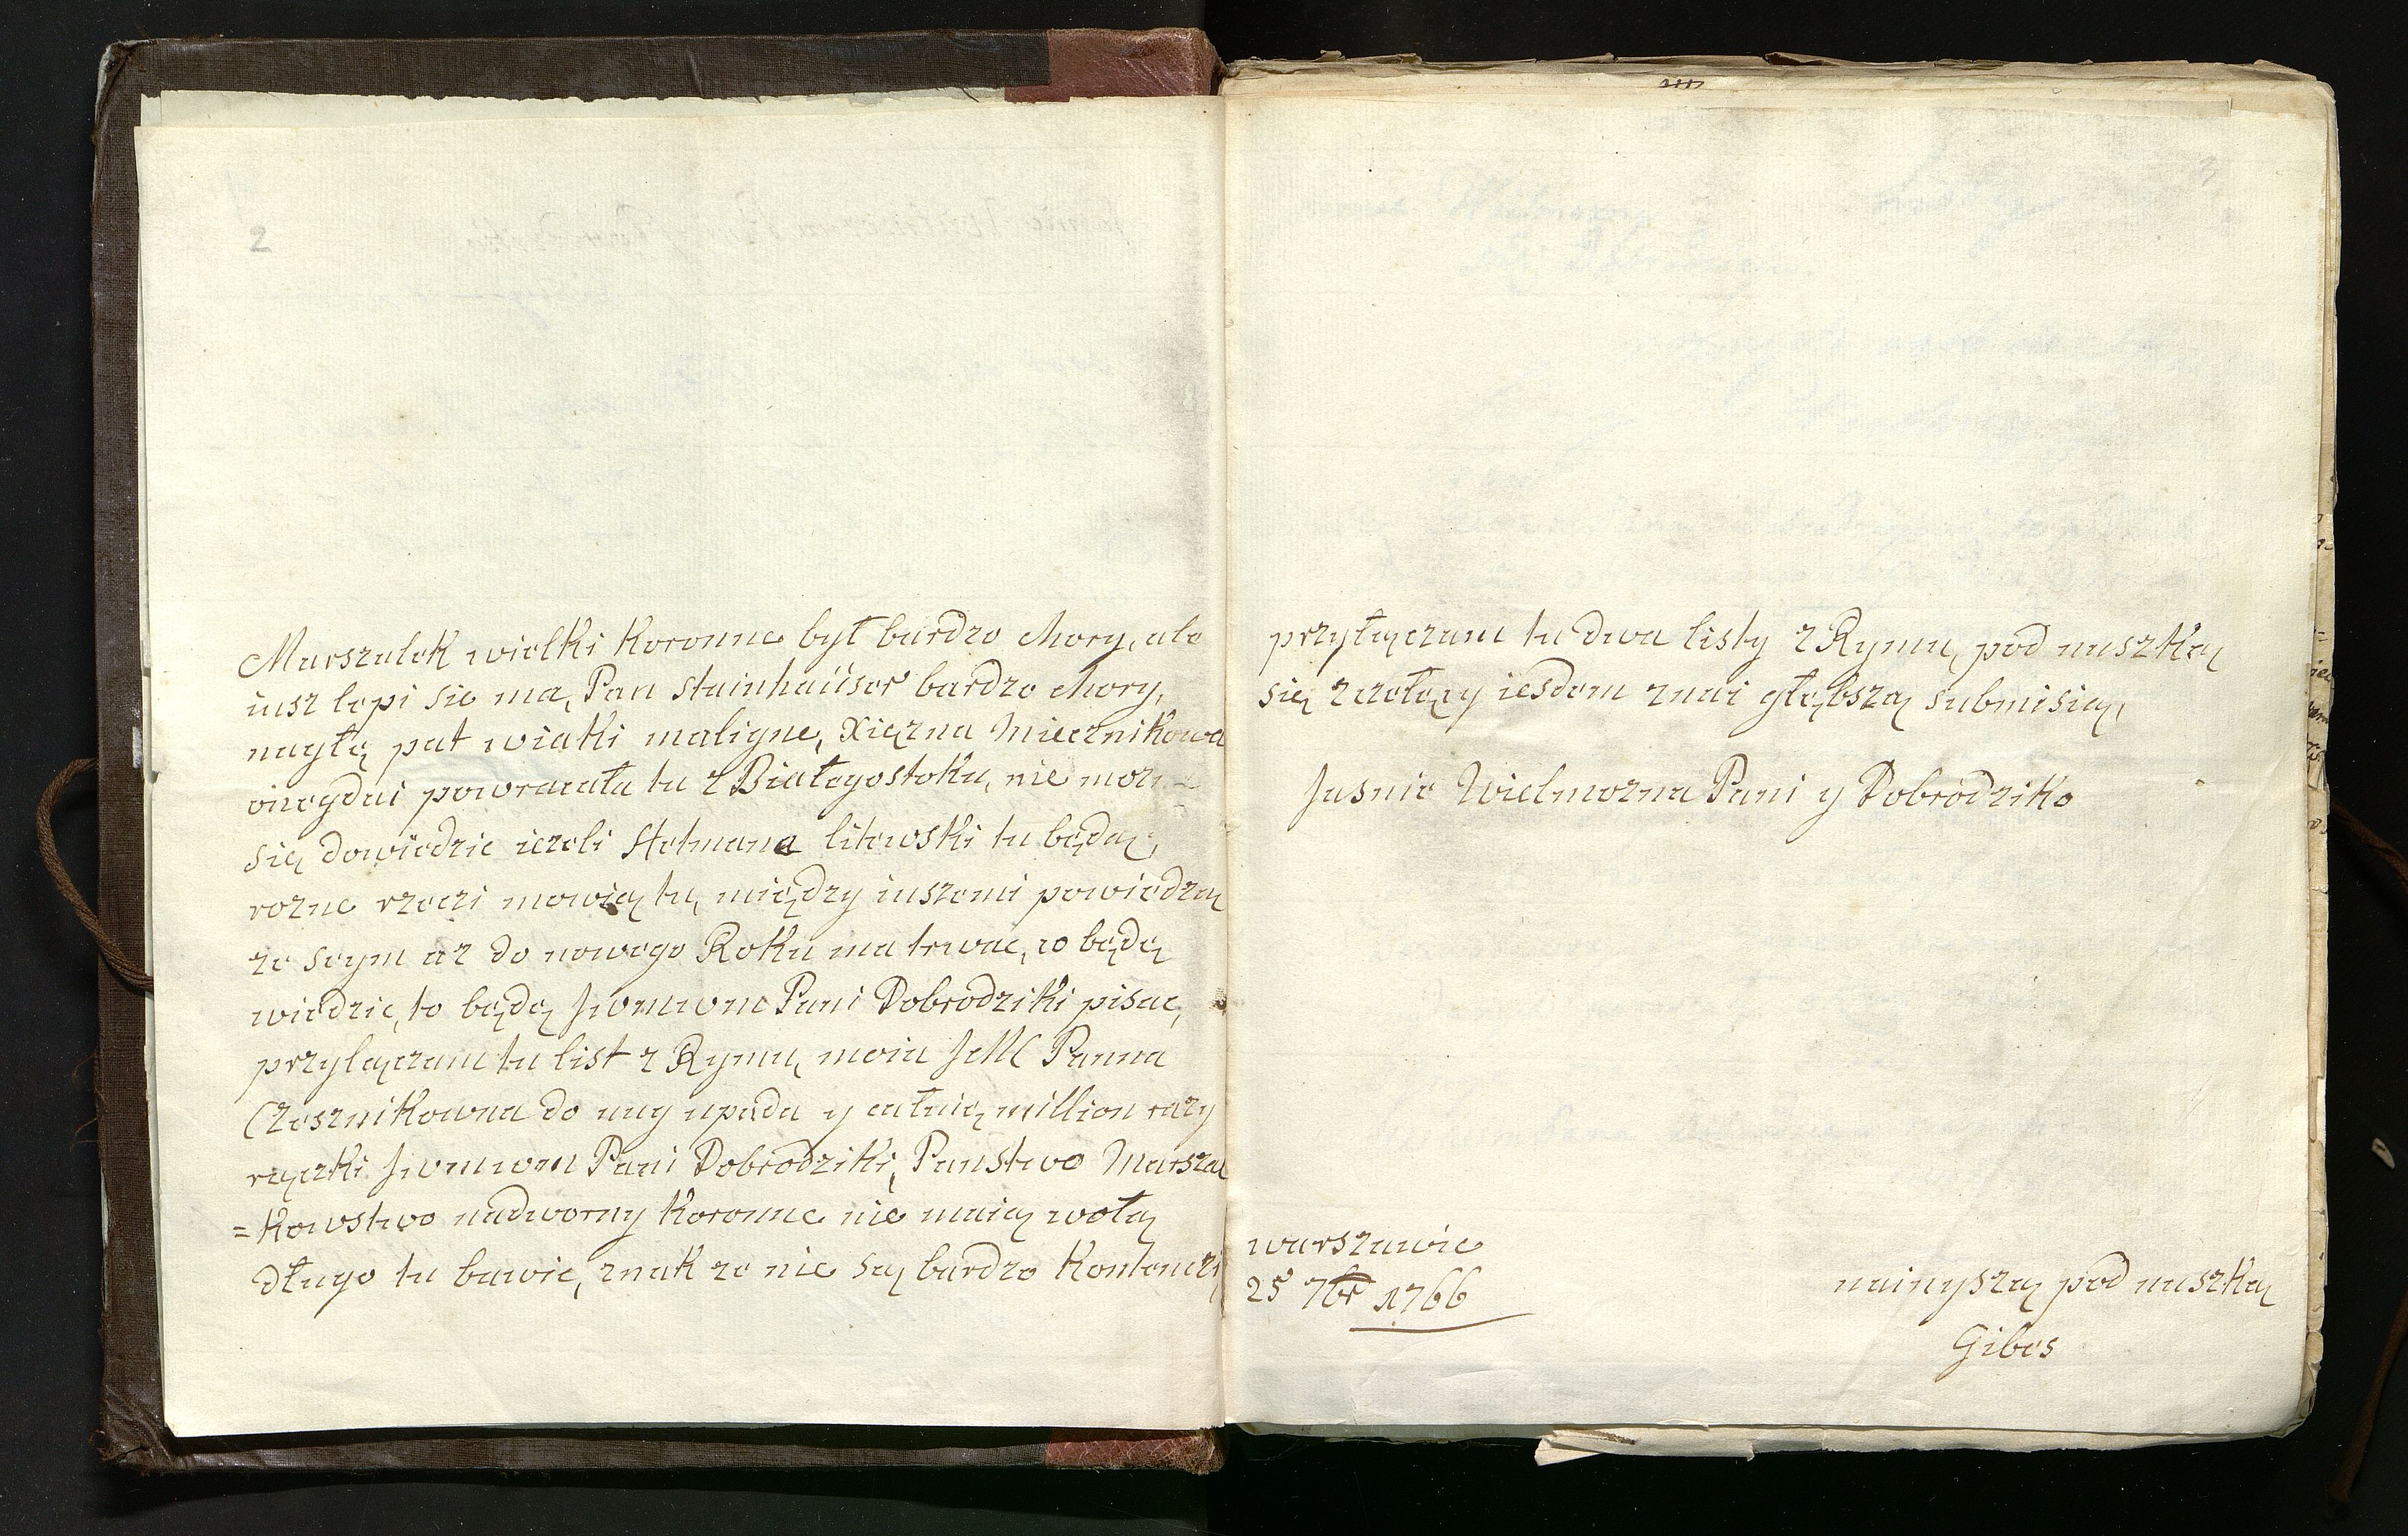 2
Marszalek wielki Koronne był bardzo chory, ale
iusz lepi sie ma, Pan Stainhaüser bardzo chory,
nagłę pat wiatki maligne, Xięzna Miecznikowa
onegdai powracała tu z Białegostoku, nie moz
się dowiedzic iezeli Hetmana litewski tu będą,
rozne rzeczi mowią tu, między inszemi powiedzą
ze Seym az do nowego Roku ma trwac, co będę
wiedzic, to będę Jwmwne Pani Dobrodziki pisac,
przylączam tu list z Rymu, moia JMC Panna
Czesznikowna do nug upada y całuię million razy
rączki Jwmwni Pani Dobrodziki, Panstwo Marszal
=Kowstwo nadworny Koronne nie maią wolą
długo tu bawic, znak ze nie są bardzo Kontenczi,
3
przyłączam tu dwa listy z Rymu, pod nuszką
się zczołęzy iesdem znai głębszą submisią,
Jasnie Wielmozna Pani y Dobrodziko
warszawie
25 7br 1766
nainyszą pod nuszką
Gibes